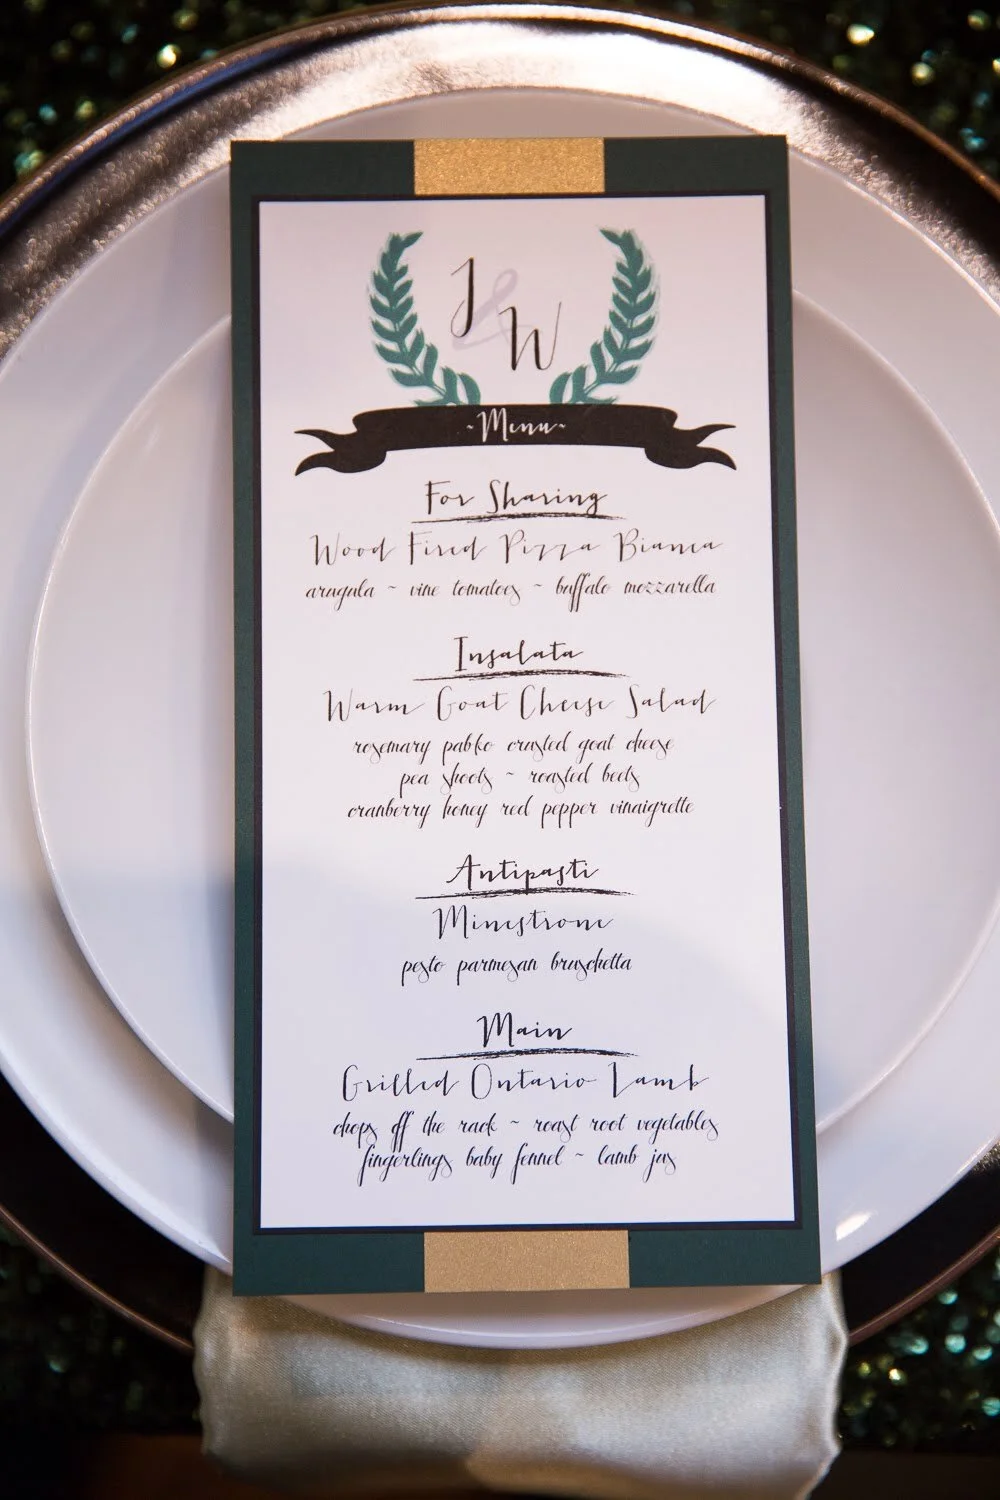 J & W
~Menu~
For Sharing
Wood Fired Pizza Bianca
arugula ~ vine tomatoes ~ buffalo mozzarella
Insalata
Warm Goat Cheese Salad
rosemary pabko crusted goat cheese
pea shoots ~ roasted beets
cranberry honey red pepper vinaigrette
Antipasti
Minestrone
pesto parmesan bruschetta
Main
Grilled Ontario Lamb
chops off the rack ~ roast root vegetables
fingerlings baby fennel ~ lamb jus